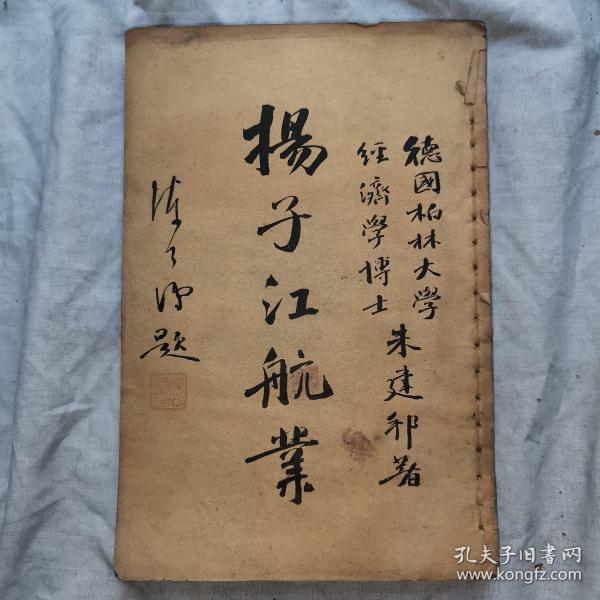 德國柏林大學
經濟學博士
朱建邦著
揚子江航業
題
孔夫子旧书网
www.kongfz.com